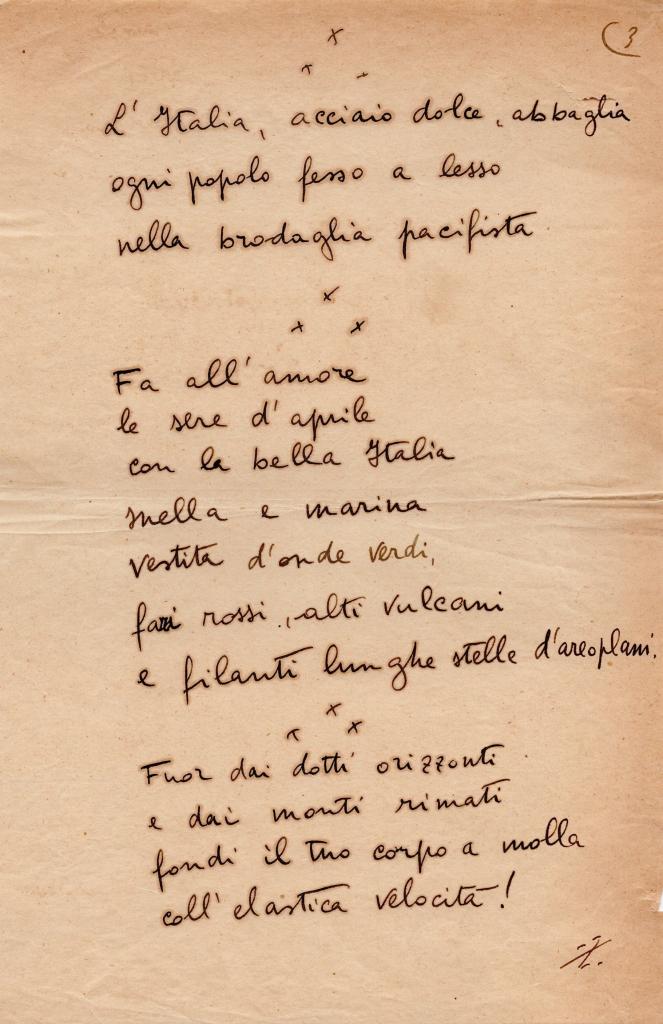 3
L' Italia, acciaio dolce, abbaglia
ogni popolo fesso a lesso
nella brodaglia pacifista
Fa all'amore
le sere d'aprile
con la bella Italia
snella e marina
vestita d'onde verdi,
fari rossi, alti vulcani
e filanti lunghe stelle d'areoplani.
Fuor dai dotti orizzonti
e dai monti rimati
fondi il tuo corpo a molla
coll'elastica velocità!